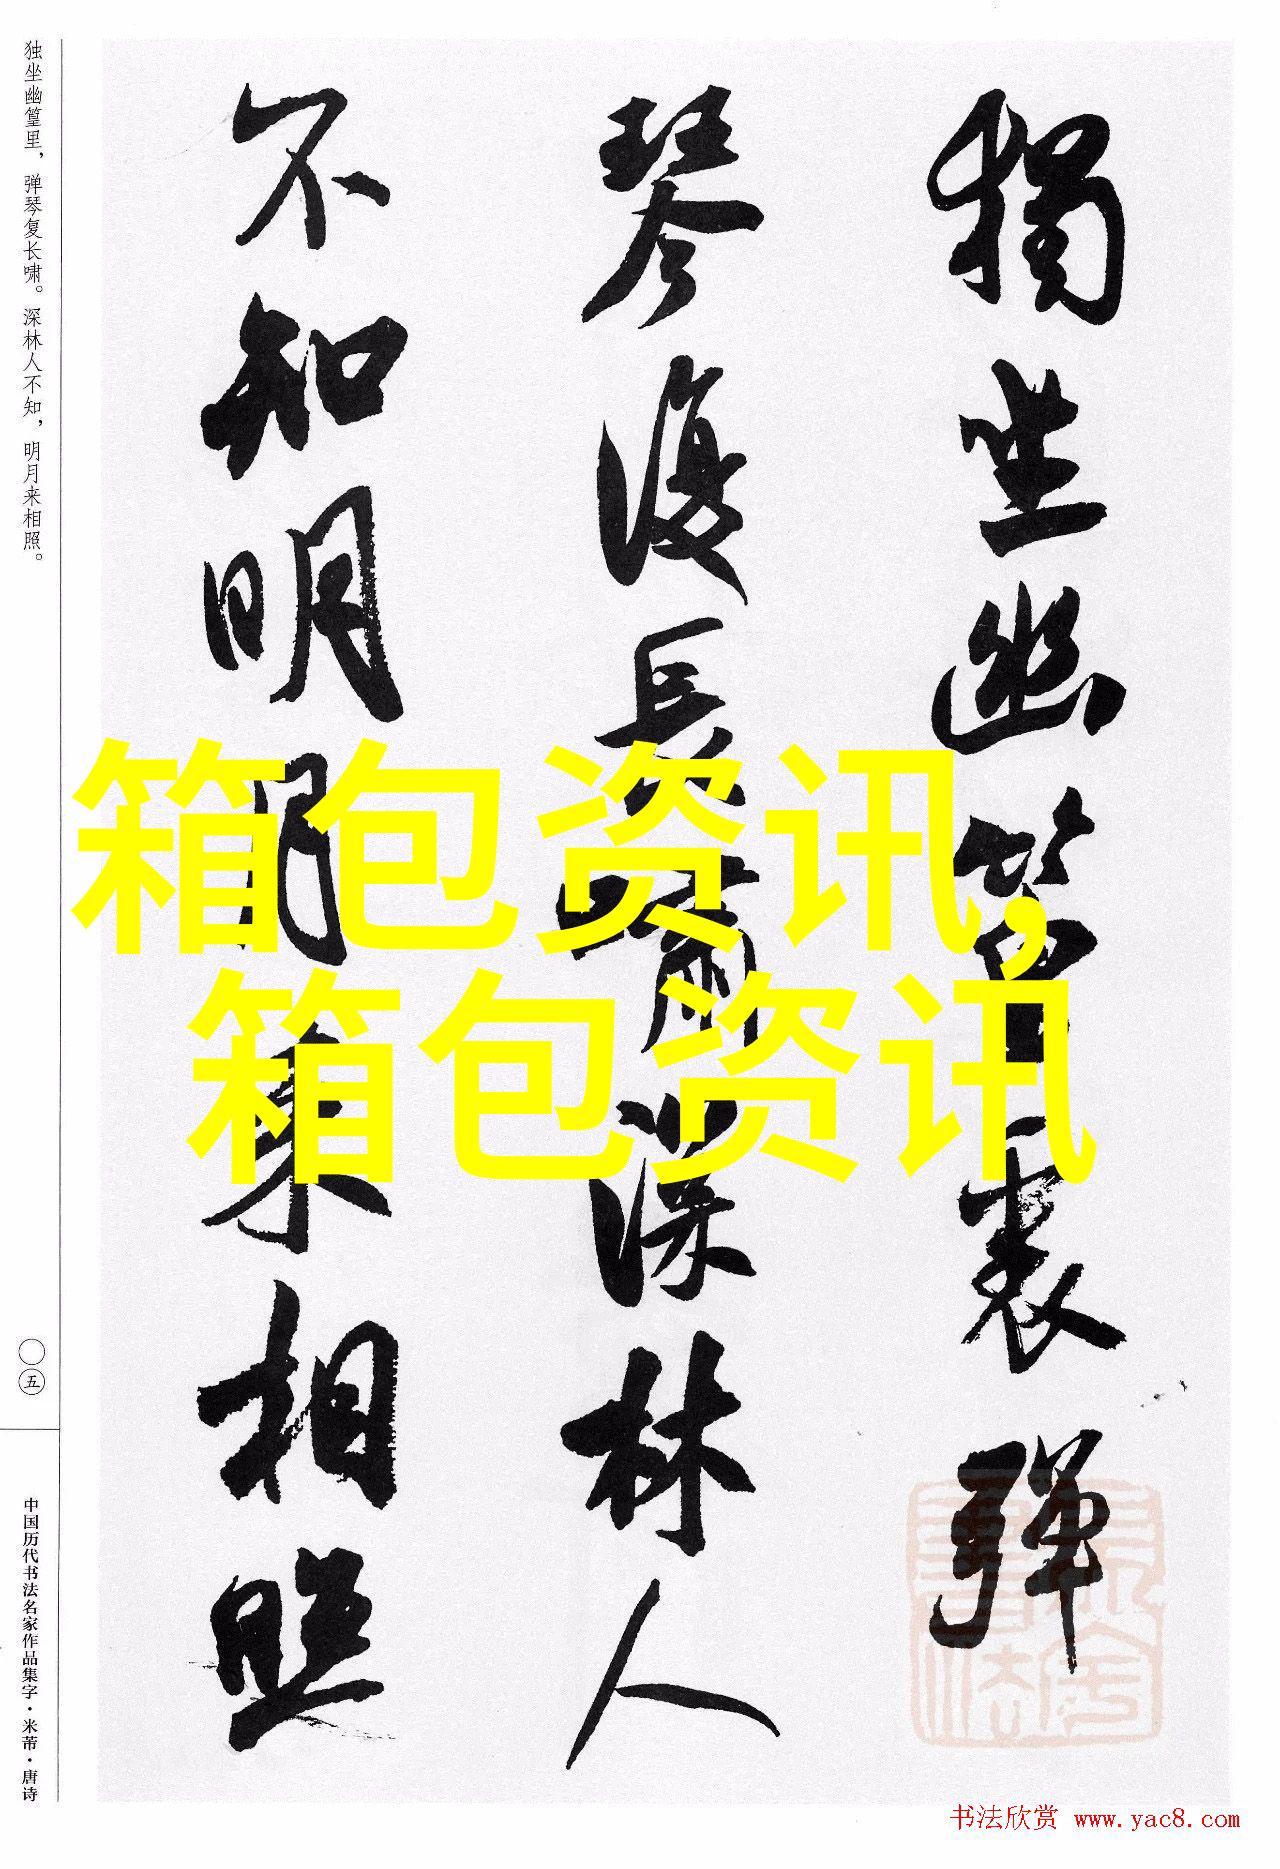 獨坐幽篁裏彈
琴復長嘯深林人
不知明月來相照
箱包资讯,
箱包资讯
独坐幽篁里，弹琴复长啸。深林人不知，明月来相照。
〇五
中国历代书法名家作品集字·米芾·唐诗
书法欣赏 www.yac8.com